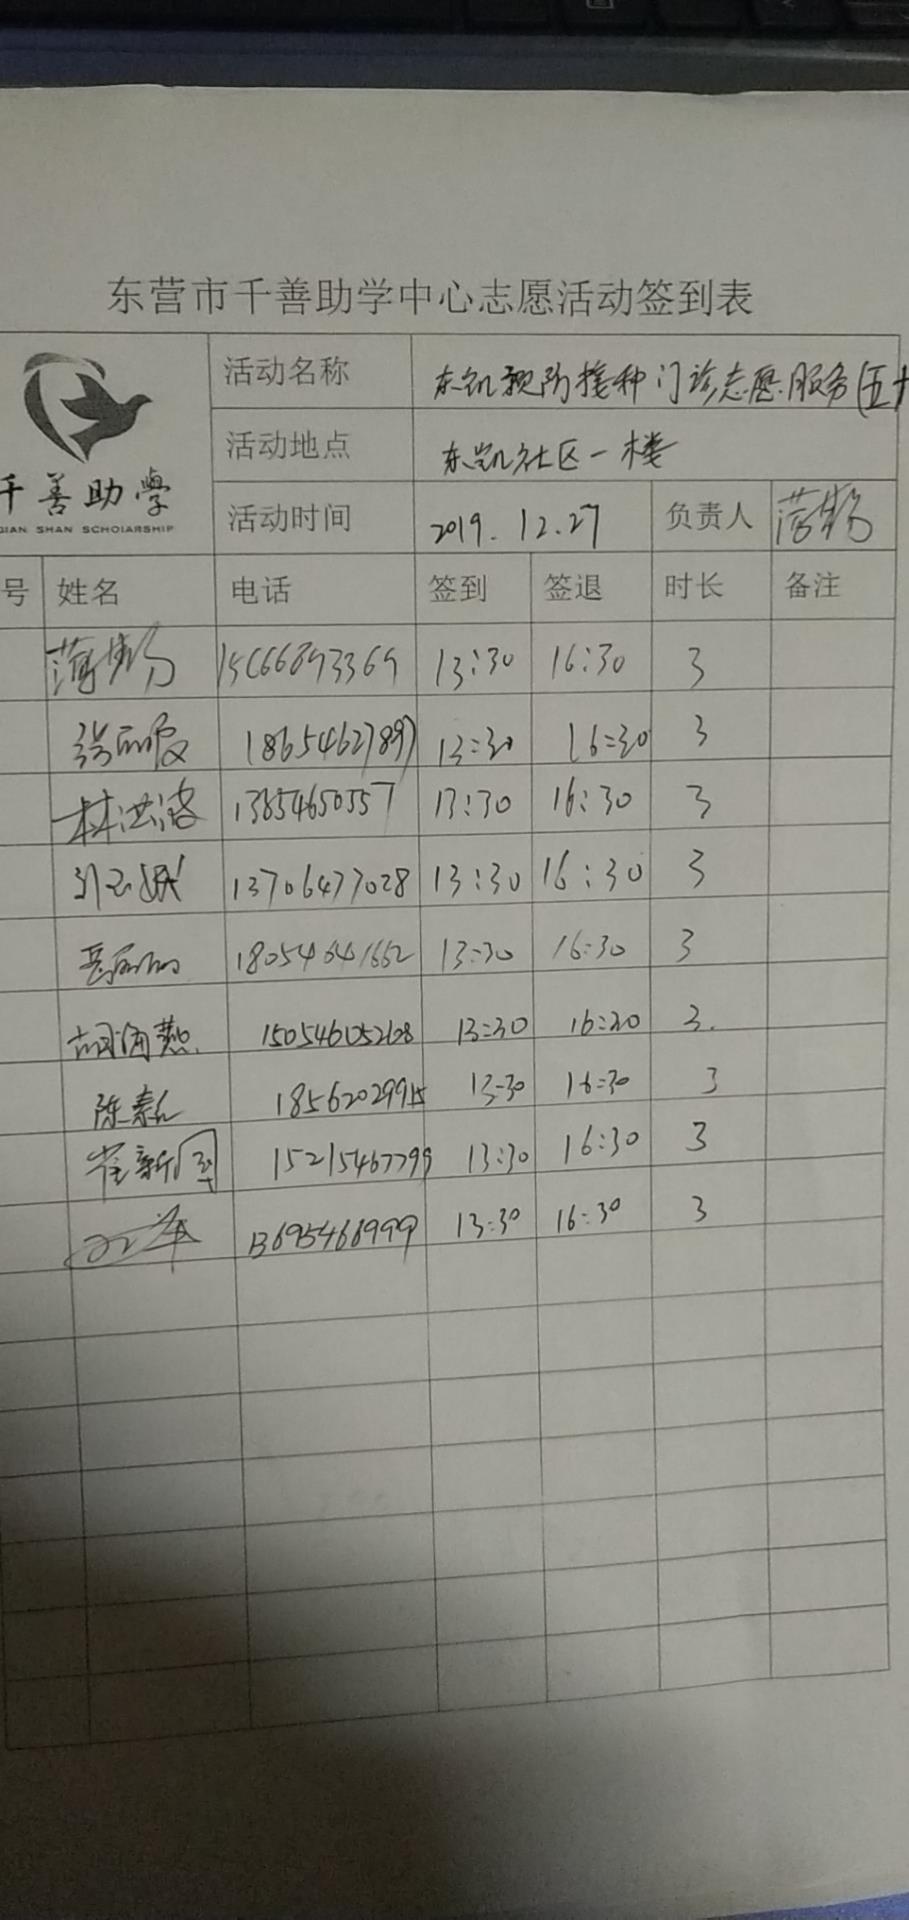 东营市千善助学中心志愿活动签到表
活动名称 东凯预防接种门诊志愿服务(五十
千善助學
QIAN SHAN SCHOLARSHIP
活动地点 东凯社区一楼
活动时间 2019.12.27 负责人
号 姓名 电话 签到 签退 时长 备注
15666893369 13:30 16:30 3
张丽霞 18654627897 13:30 16:30 3
林洪波 13854650557 13:30 16:30 3
13706477028 13:30 16:30 3
18054641662 13:30 16:30 3
胡海燕 13:30 16:30 3.
陈素 13:30 16:30 3
崔新国 15215467799 13:30 16:30 3
13695466999 13:30 16:30 3